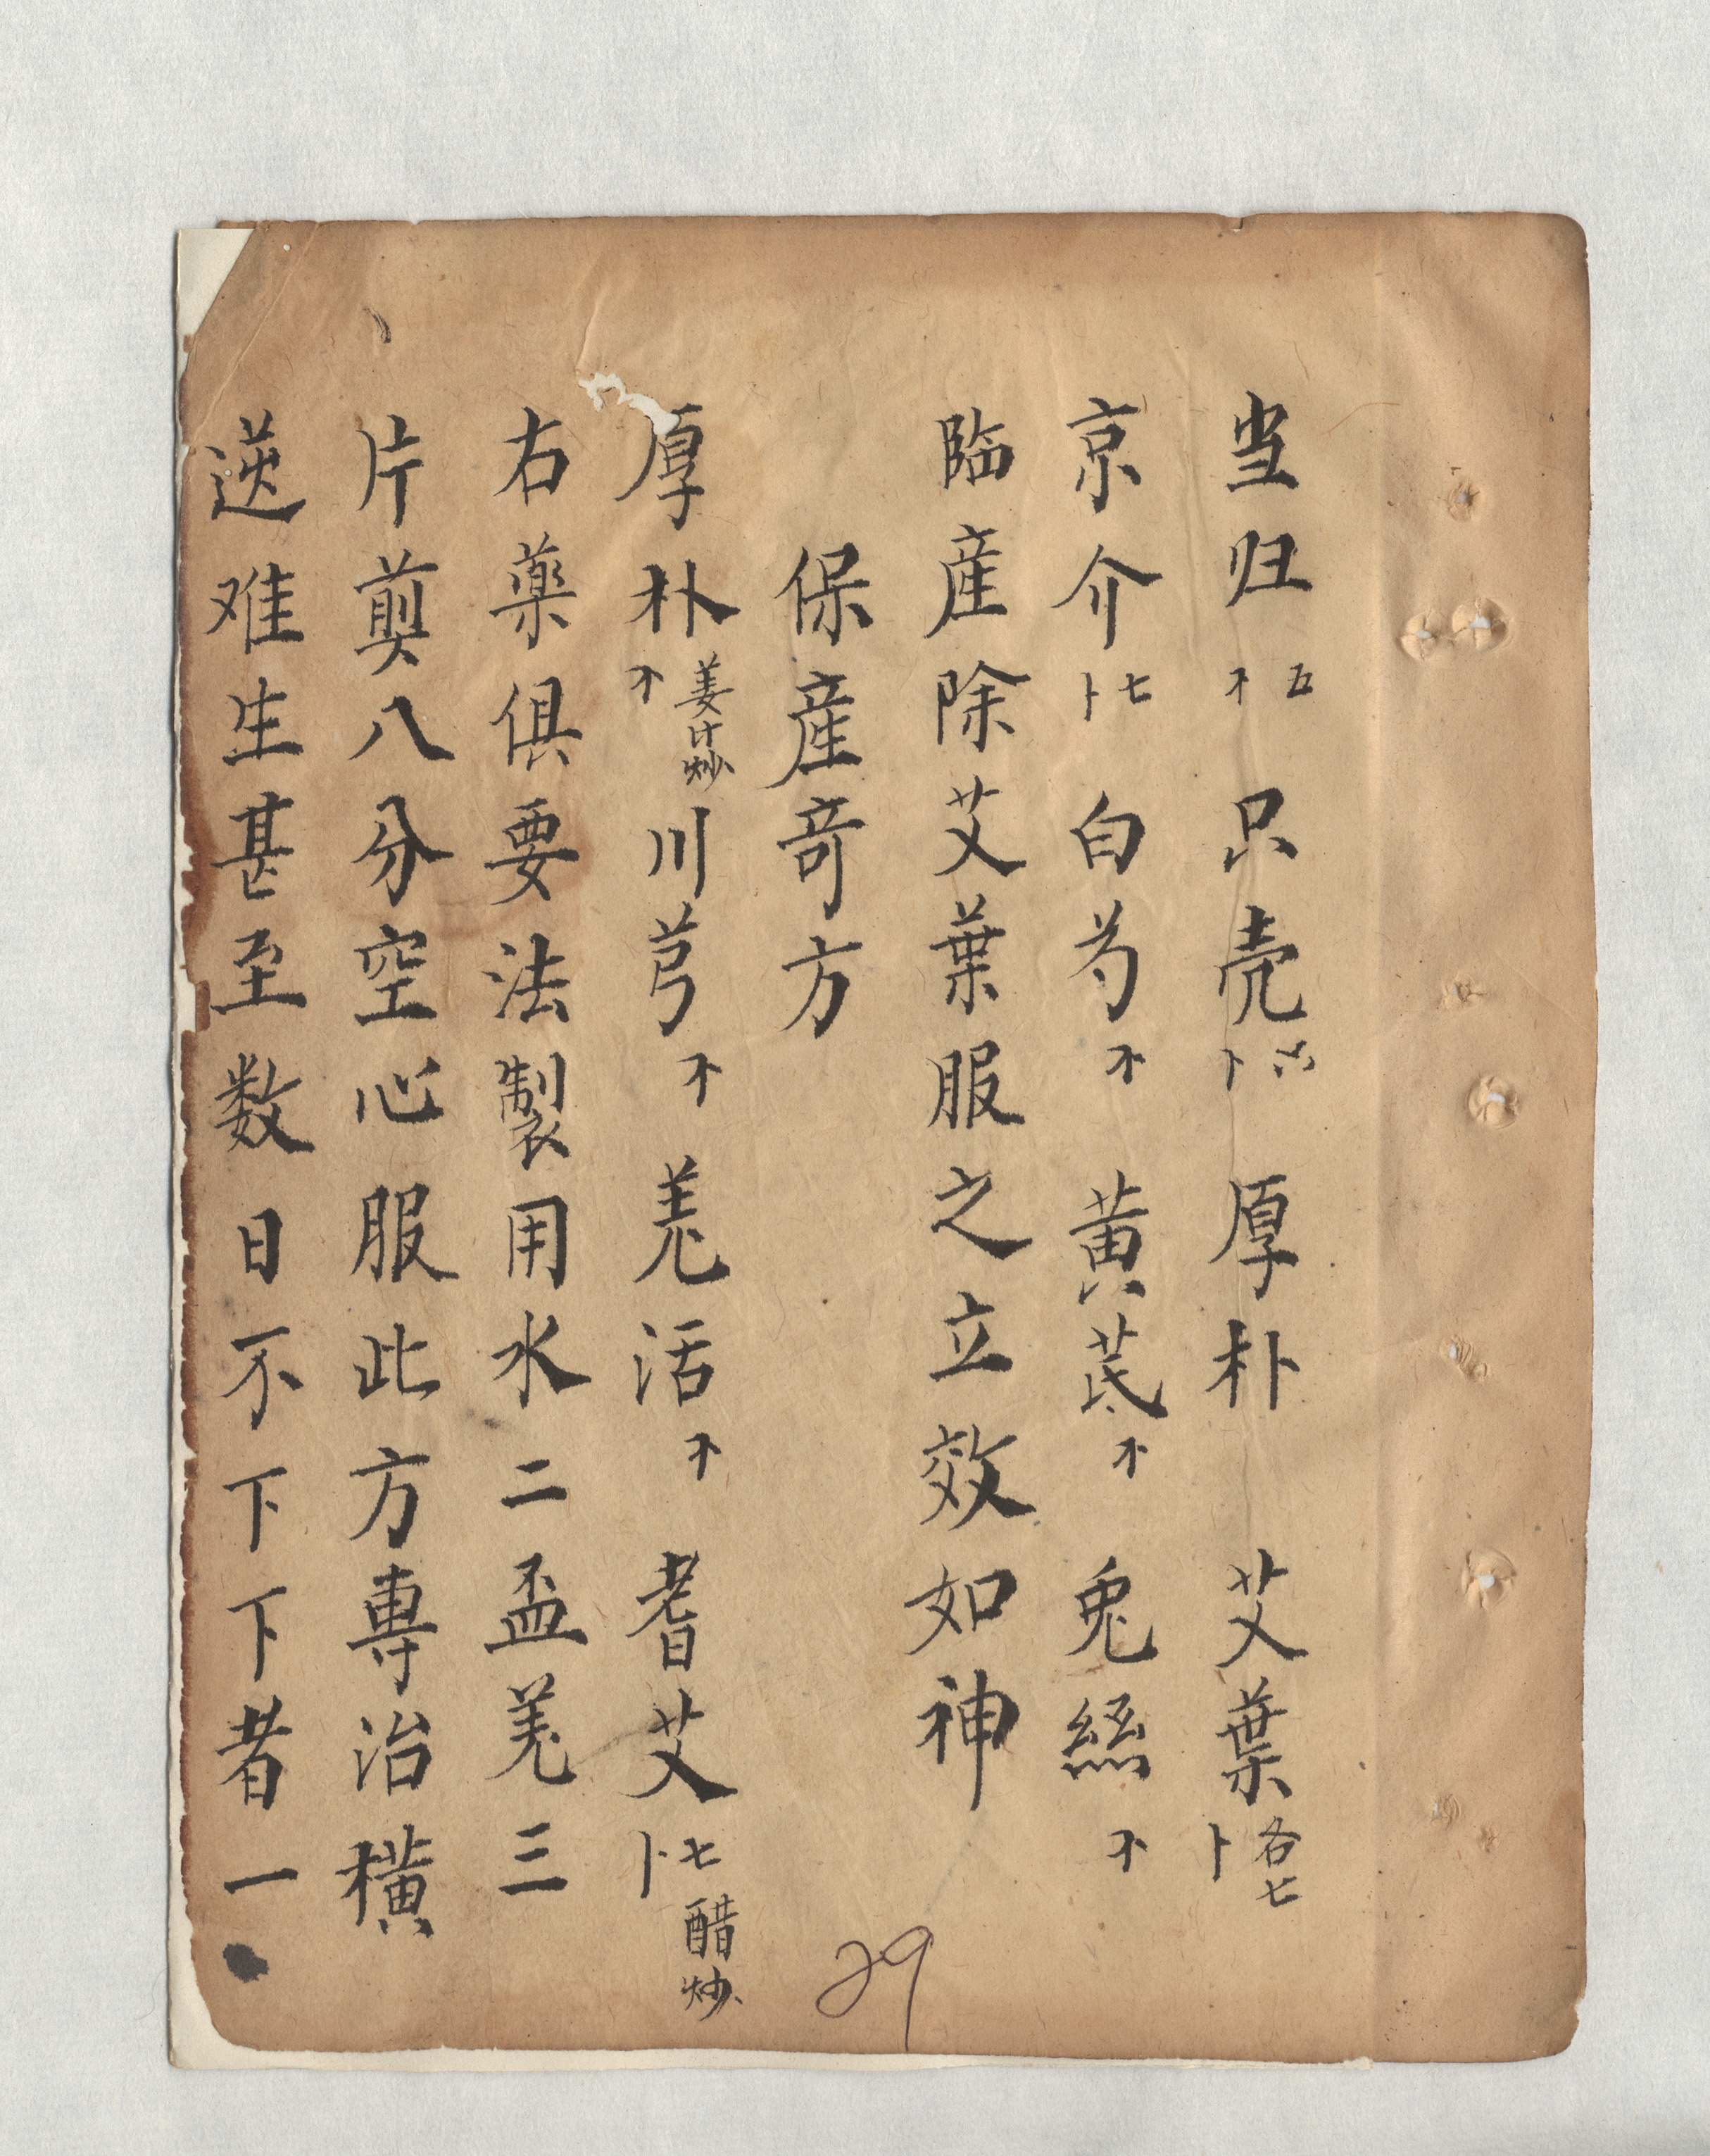 当归五才 只壳六卜 厚朴 艾葉各七卜
京介七卜 白芍才 黄芪才 兎絲才
臨産除艾葉服之立效如神
保産竒方
厚朴姜汁炒才 川芎才 羗活才 耆艾七卜醋炒
右薬俱要法製用水二盃羗三
片煎八分空心服此方專治横
送难生甚至数日不下下者一
29